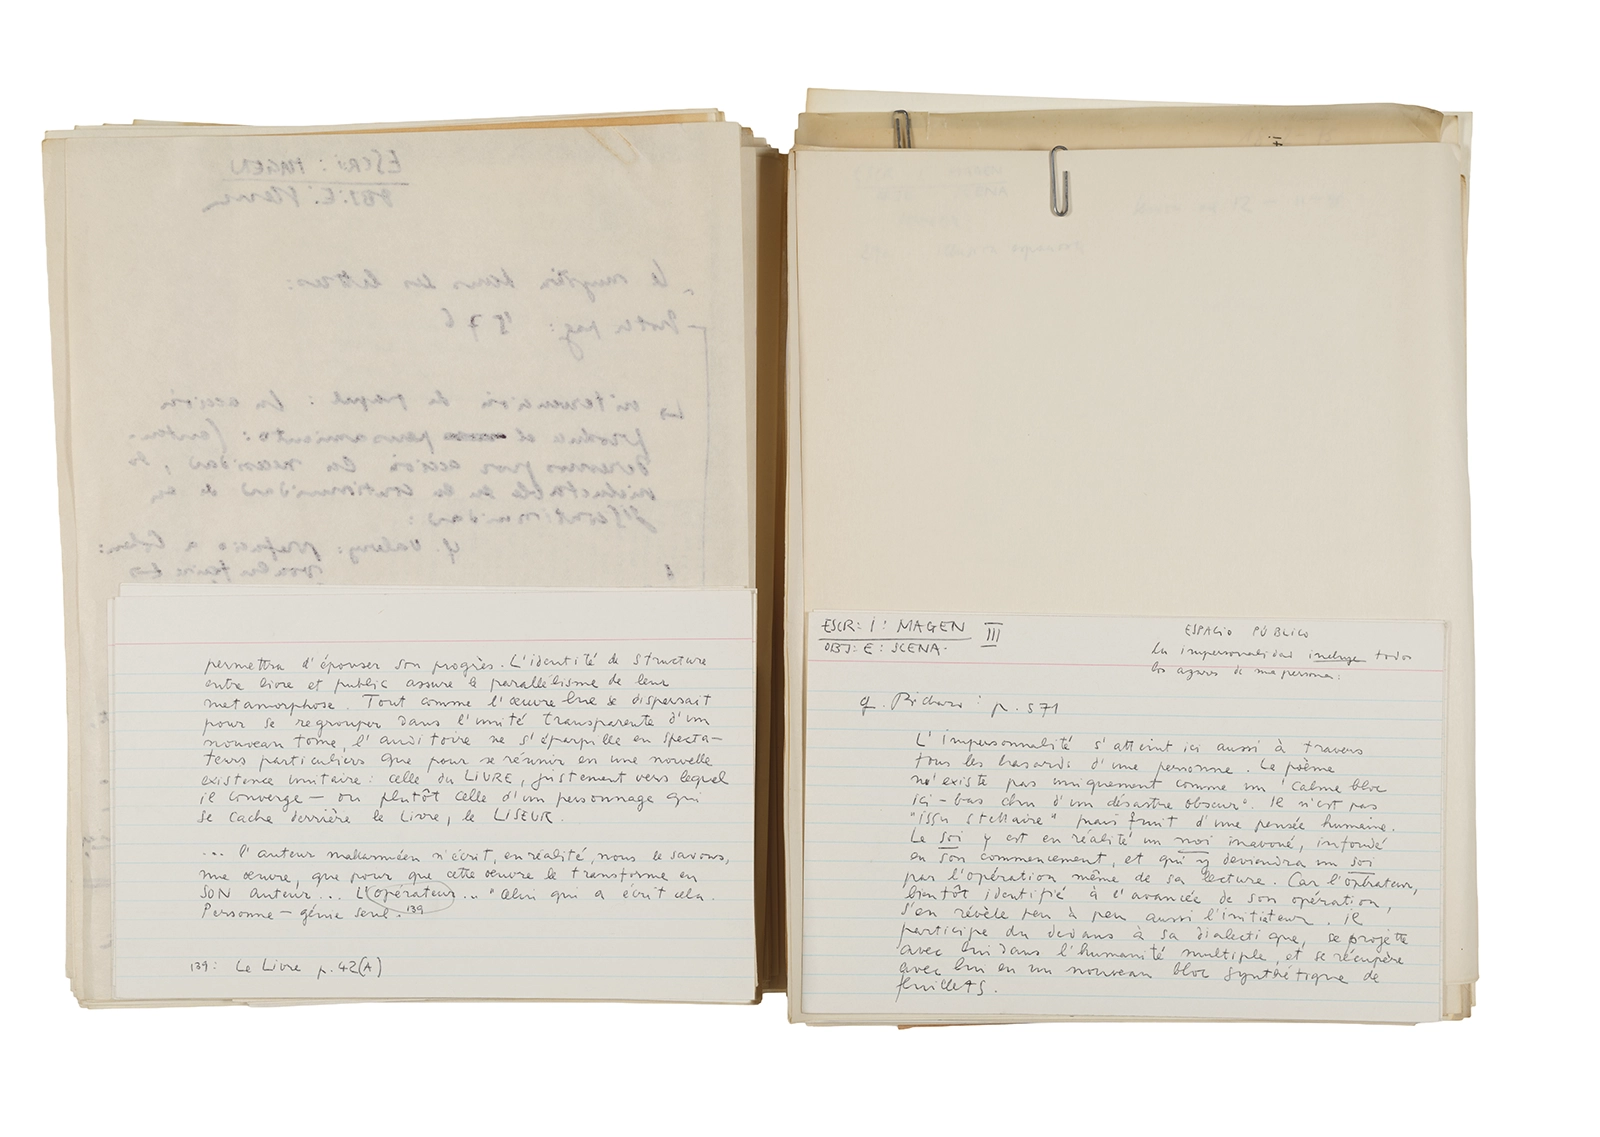 ESCRi: MAGEN
OBJ: E:
Le mystère dans les lettres:
pag: 1576
intervención de papel: la acción
produce el pensamiento: (enten-
deremos por acción la necesidad, lo
ineluctable en la continuidad de su
discontinuidad:
cf. Valery: prefacio a Cohen:
permettra d'épouser son progrès. L'identité de structure
entre livre et public assure le parallélisme de leur
metamorphose. Tout comme l'œuvre lue se dispersait
pour se regrouper dans l'unité transparente d'un
nouveau tome, l'auditoire ne s'éparpille en specta-
teurs particuliers que pour se réunir en une nouvelle
existence unitaire: celle du LIVRE, justement vers lequel
il converge — ou plutôt celle d'un personnage qui
se cache derrière le Livre, le LISEUR.
... l'auteur mallarméen n'écrit, en réalité, nous le savons,
une œuvre, que pour que cette œuvre le transforme en
SON auteur... L'opérateur... "Celui qui a écrit cela.
Personne — génie seul. 139
139: Le Livre p. 42(A)
ESCR: I: MAGEN III
OBJ: E: SCENA.
ESPACIO PÚBLICO
La impersonalidad incluye todos
los azares de una persona:
cf. Richard: p. 571
L'impersonnalité s'atteint ici aussi à travers
tous les hasards d'une personne. Le poème
n'existe pas uniquement comme un "calme bloc
ici-bas chu d'un désastre obscur". Il n'est pas
"issu stellaire" mais fruit d'une pensée humaine.
Le soi y est en réalité un moi inavoué, infondé
en son commencement, et qui y deviendra un soi
par l'opération même de sa lecture. Car l'opérateur,
bientôt identifié à l'avancée de son opération,
s'en révèle peu à peu aussi l'initiateur. Il
participe du dedans à sa dialectique, se projette
avec lui dans l'humanité multiple, et se récupère
avec lui en un nouveau bloc synthétique de
feuillets.